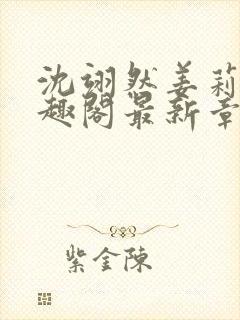 沈翊然姜莉
趣阁最新章
紫金陈